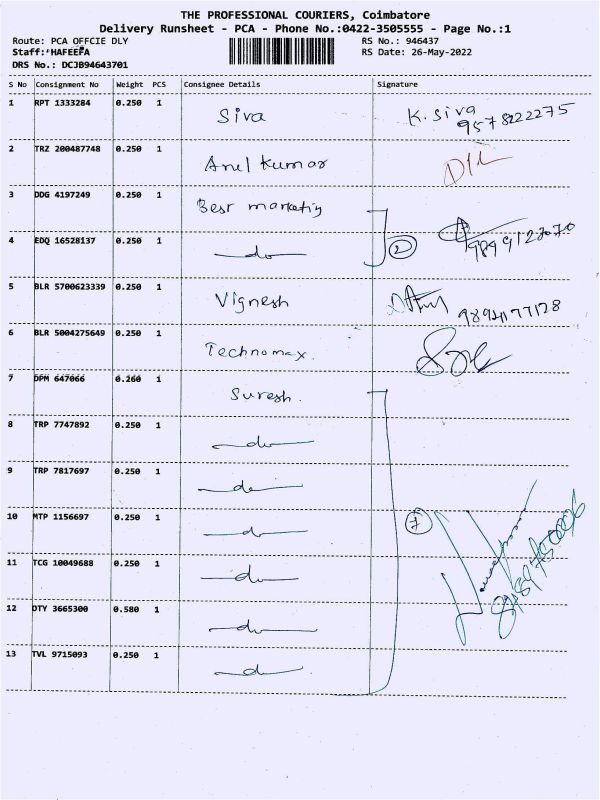 THE PROFESSIONAL COURIERS, Coimbatore
Delivery Runsheet - PCA - Phone No.:0422-3505555 - Page No.:1
Route: PCA OFFCIE DLY RS No.: 946437
Staff: HAFEEFA RS Date: 26-May-2022
DRS No.: DCJB94643701
S No Consignment No Weight PCS Consignee Details Signature
1 RPT 1333284 0.250 1 Siva K. Siva
9578222275
2 TRZ 200487748 0.250 1 Arul Kumar
3 DDG 4197249 0.250 1 Best marketing
4 EDQ 16528137 0.250 1 do 2
5 BLR 5700623339 0.250 1 Vignesh
6 BLR 5004275649 0.250 1 Technomax.
7 DPM 647066 0.260 1 Suresh.
8 TRP 7747892 0.250 1 do
9 TRP 7817697 0.250 1 do
10 MTP 1156697 0.250 1 do 7
11 TCG 10049688 0.250 1 do
12 DTY 3665300 0.580 1 do
13 TVL 9715093 0.250 1 do